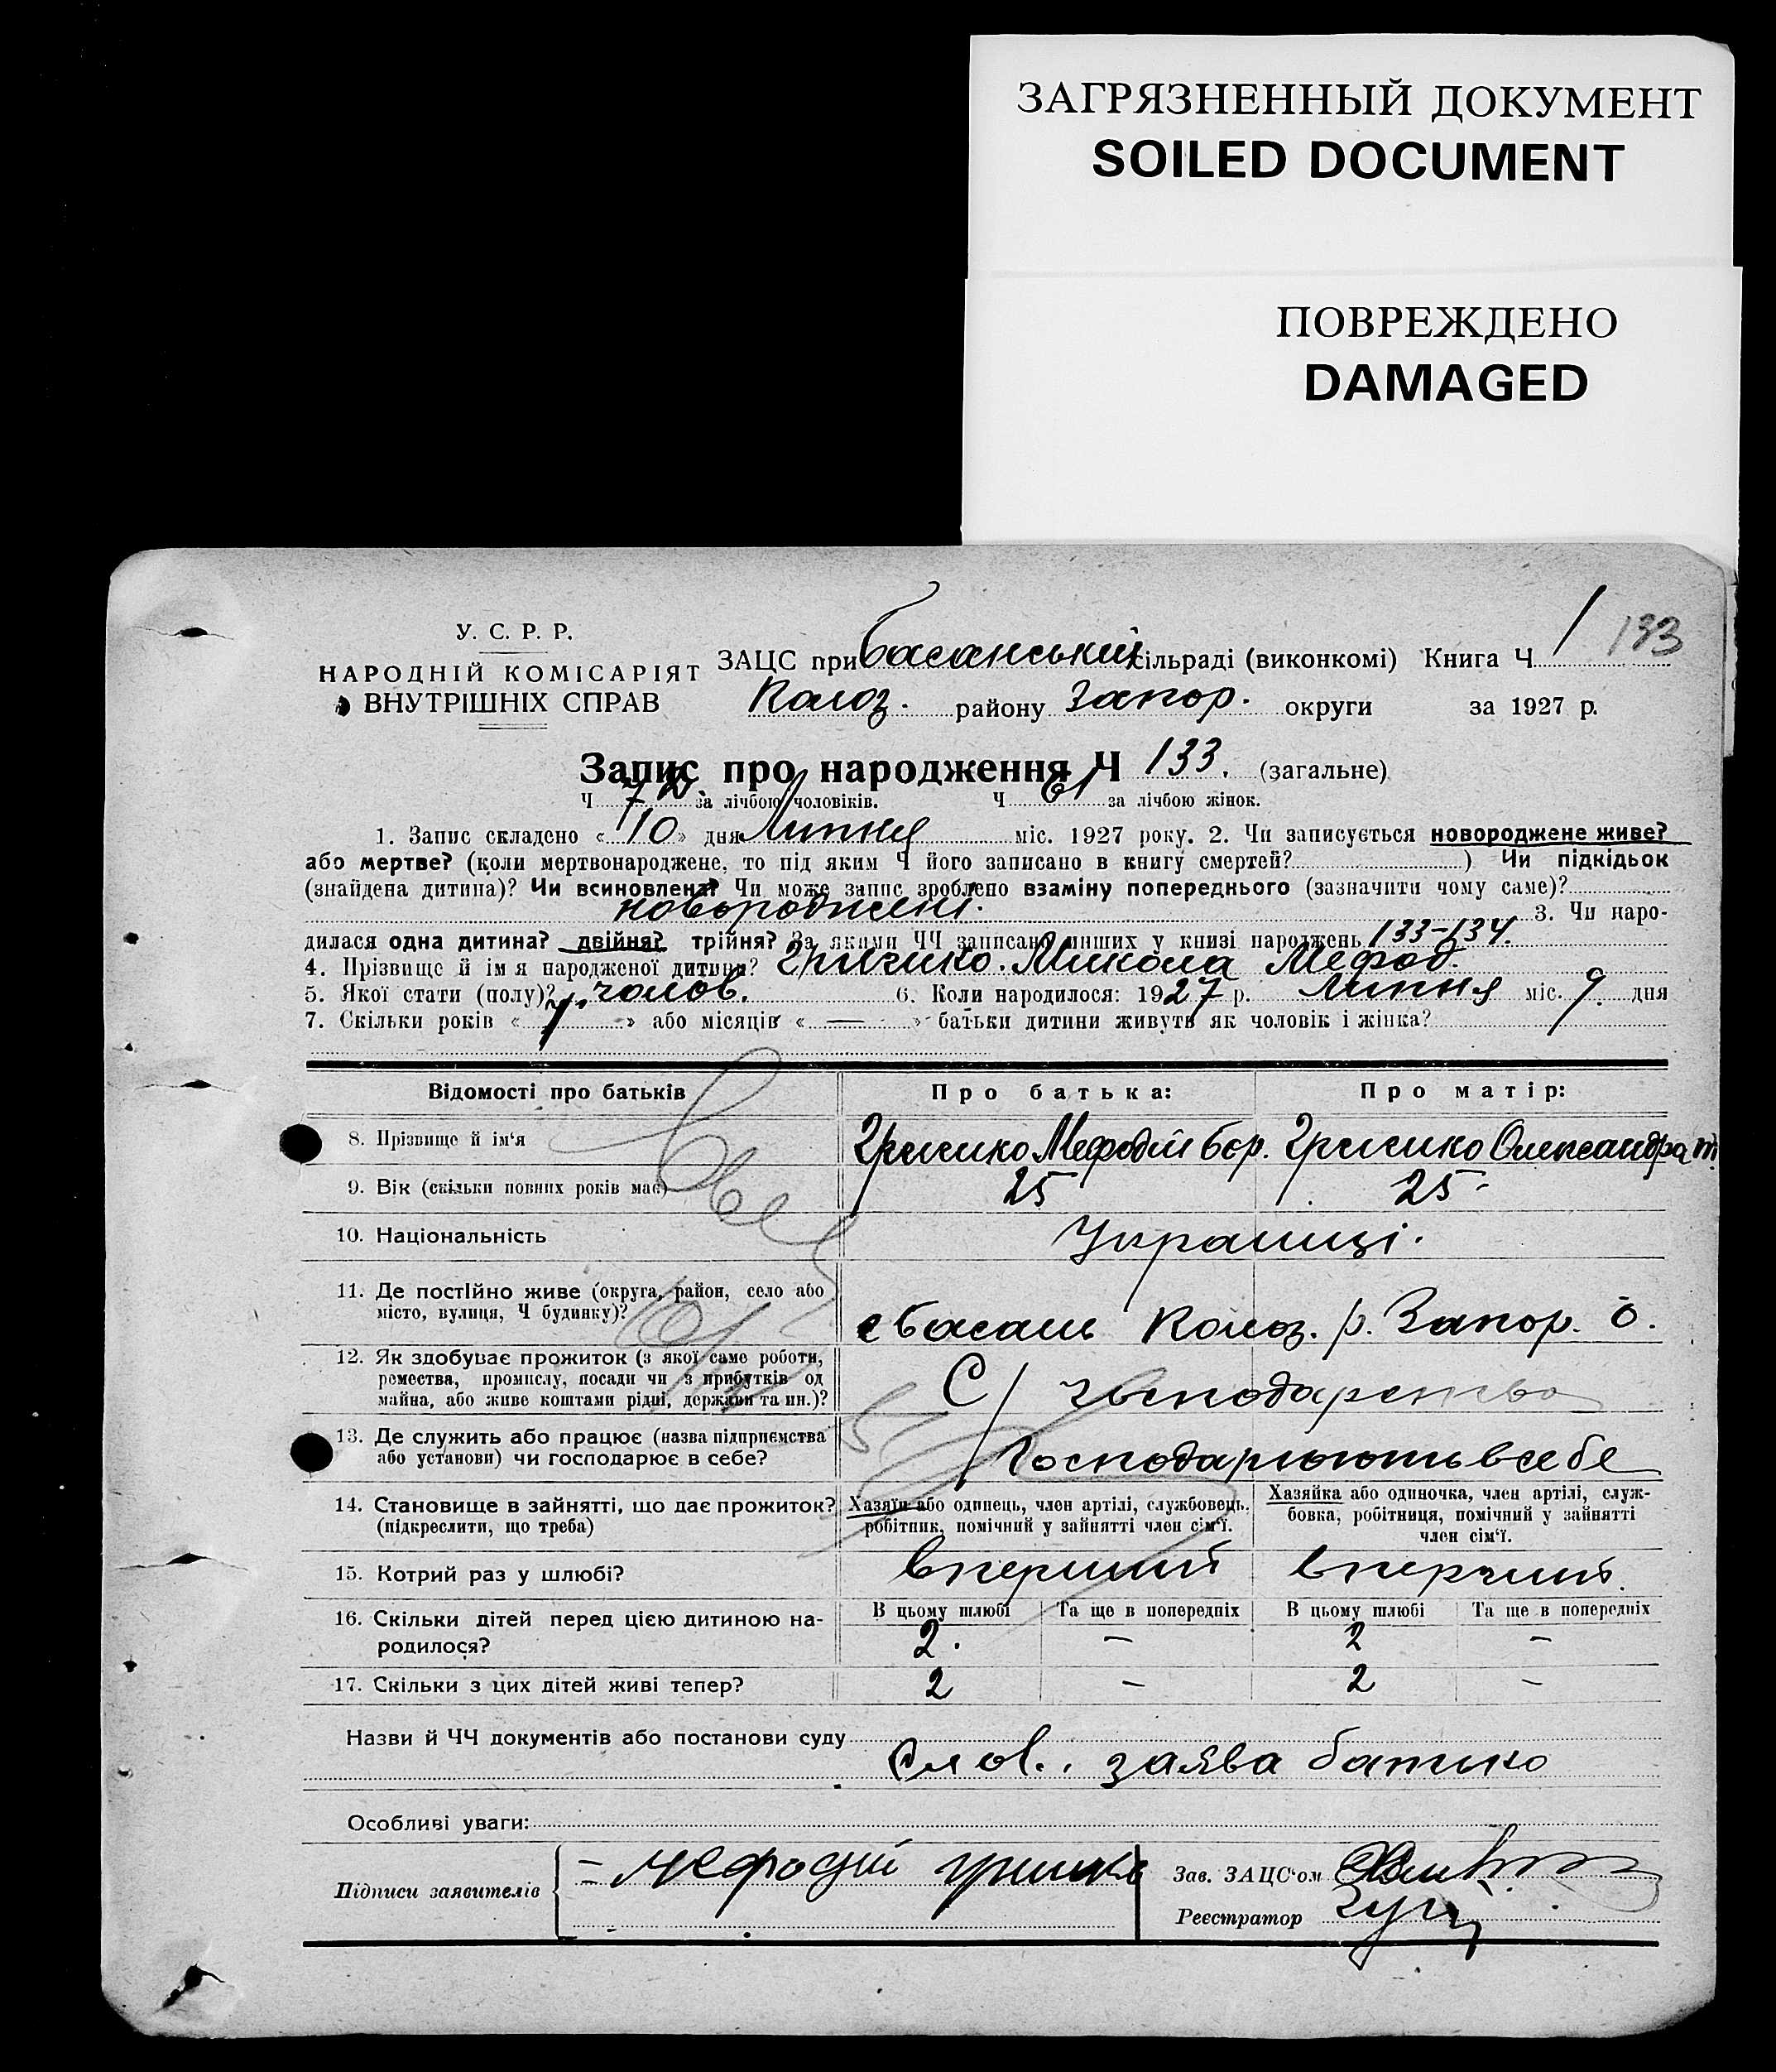 ЗАГРЯЗНЕННЫЙ ДОКУМЕНТ
SOILED DOCUMENT
ПОВРЕЖДЕНО
DAMAGED
У. С. Р. Р.
НАРОДНІЙ КОМІСАРІЯТ
ВНУТРІШНІХ СПРАВ
ЗАЦС при Басанський сільраді (виконкомі) Книга Ч 1 133
району Запор. округи за 1927 р.
Запис про народження Ч 133. (загальне)
Ч 72. за лічбою чоловіків. Ч 61 за лічбою жінок.
1. Запис складено « 10 » дня Липня міс. 1927 року. 2. Чи записується новороджене живе?
або мертве? (коли мертвонароджене, то під яким Ч його записано в книгу смертей? ) Чи підкідьок
(знайдена дитина)? Чи всиновлена? Чи може запис зроблено взаміну попереднього (зазначити чому саме)?
новороджені. 3. Чи наро-
дилася одна дитина? двійня? трійня? За якими ЧЧ записано инших у книзі народжень 133-134.
4. Прізвище й ім я народженої дитини? Гричико. Микола Мефод.
5. Якої стати (полу)? чолов. 6. Коли народилося: 1927 р. Липня міс. 9. дня
7. Скільки років « 7 » або місяців « — » батьки дитини живуть як чоловік і жінка?
Відомості про батьків Про батька: Про матір:
8. Прізвище й ім'я Гричико Мефодій Гричико Олександра
9. Вік (скільки повних років має) 25 25
10. Національність Українці.
11. Де постійно живе (округа, район, село або
місто, вулиця, Ч будинку)? с Басань р. Запор. о.
12. Як здобуває прожиток (з якої саме роботи,
ремества, промислу, посади чи з прибутків од
майна, або живе коштами рідні, держави та ин.)? С/ господарство
13. Де служить або працює (назва підприємства
або установи) чи господарює в себе? Господарюють в себе
14. Становище в зайнятті, що дає прожиток?
(підкреслити, що треба)
Хазяїн або одинець, член артілі, службовець,
робітник, помічний у зайнятті член сім'ї.
Хазяйка або одиночка, член артілі, служ-
бовка, робітниця, помічний у зайнятті
член сім'ї.
15. Котрий раз у шлюбі? вперший вперший.
16. Скільки дітей перед цією дитиною на-
родилося?
В цьому шлюбі Та ще в попередніх В цьому шлюбі Та ще в попередніх
2. — 2 —
17. Скільки з цих дітей живі тепер? 2 — 2 —
Назви й ЧЧ документів або постанови суду
слов. заява батько
Особливі уваги:
Підписи заявителів Мефодій
Зав. ЗАЦС'ом
Реєстратор